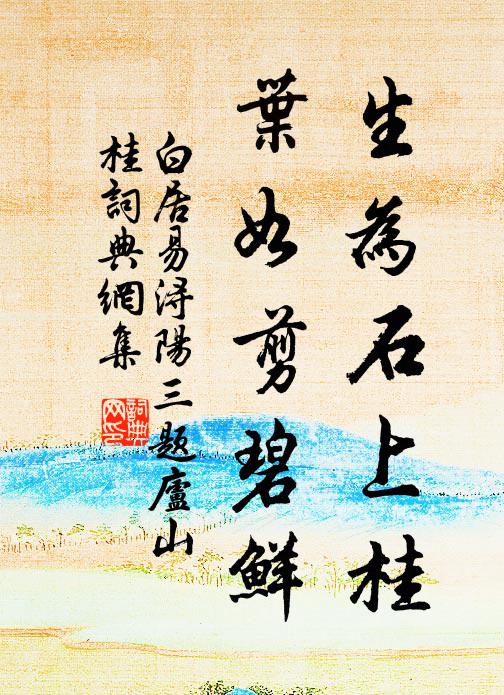 生為石上桂
葉如剪碧鮮
白居易潯陽三题廬山
桂詞典網集
詞典
网印